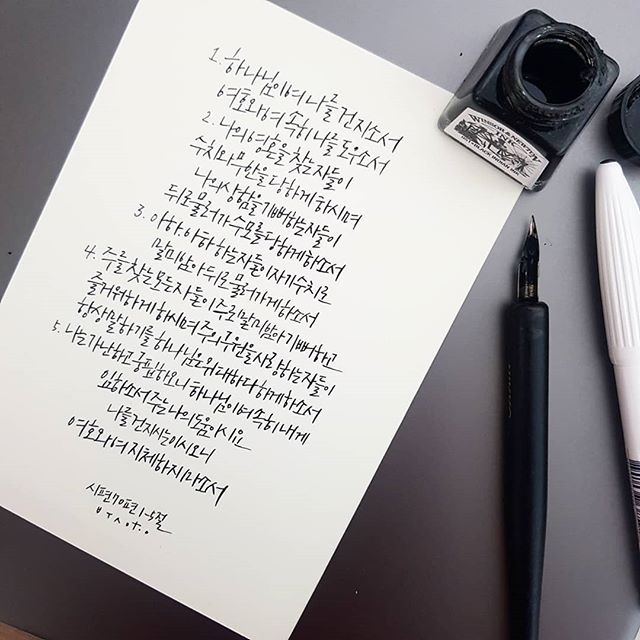 1. 하나님이여 나를 건지소서
여호와여 속히 나를 도우소서
2. 나의 영혼을 찾는 자들이
수치와 무안을 당하게 하시며
나의 상함을 기뻐하는 자들이
뒤로 물러가 수모를 당하게 하소서
3. 아하, 아하 하는 자들이 자기 수치로
말미암아 뒤로 물러가게 하소서
4. 주를 찾는 모든 자들이 주로 말미암아 기뻐하고
즐거워하게 하시며 주의 구원을 사랑하는 자들이
항상 말하기를 하나님은 위대하다 하게 하소서
5. 나는 가난하고 궁핍하오니 하나님이여 속히 내게
임하소서 주는 나의 도움이시요
나를 건지시는 이시오니
여호와여 지체하지 마소서
시편 70편 1-5절
WINSOR & NEWTON